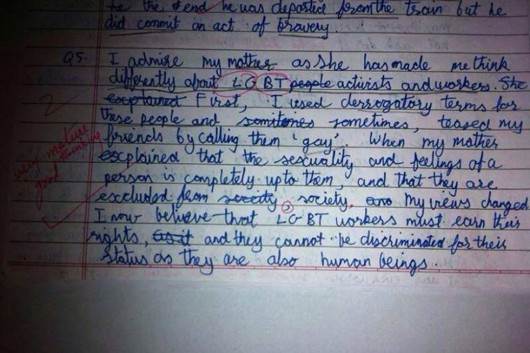 he the end he was departed from the train but he
did commit an act of bravery.
Q5. I admire my mother as she has made me think
differently about LGBT people activists and workers. She
explained First, I used derrogatory terms for
these people and somitomes sometimes, teased my
friends by calling them 'gay'. When my mother
explained that the sexuality and feelings of a
person is completely up to them, and that they are
excluded from soceity society, and My views changed.
I now believe that LGBT workers must earn their
rights, as it and they cannot be discriminated for their
status as they are also human beings.
2
very mature
good thinking